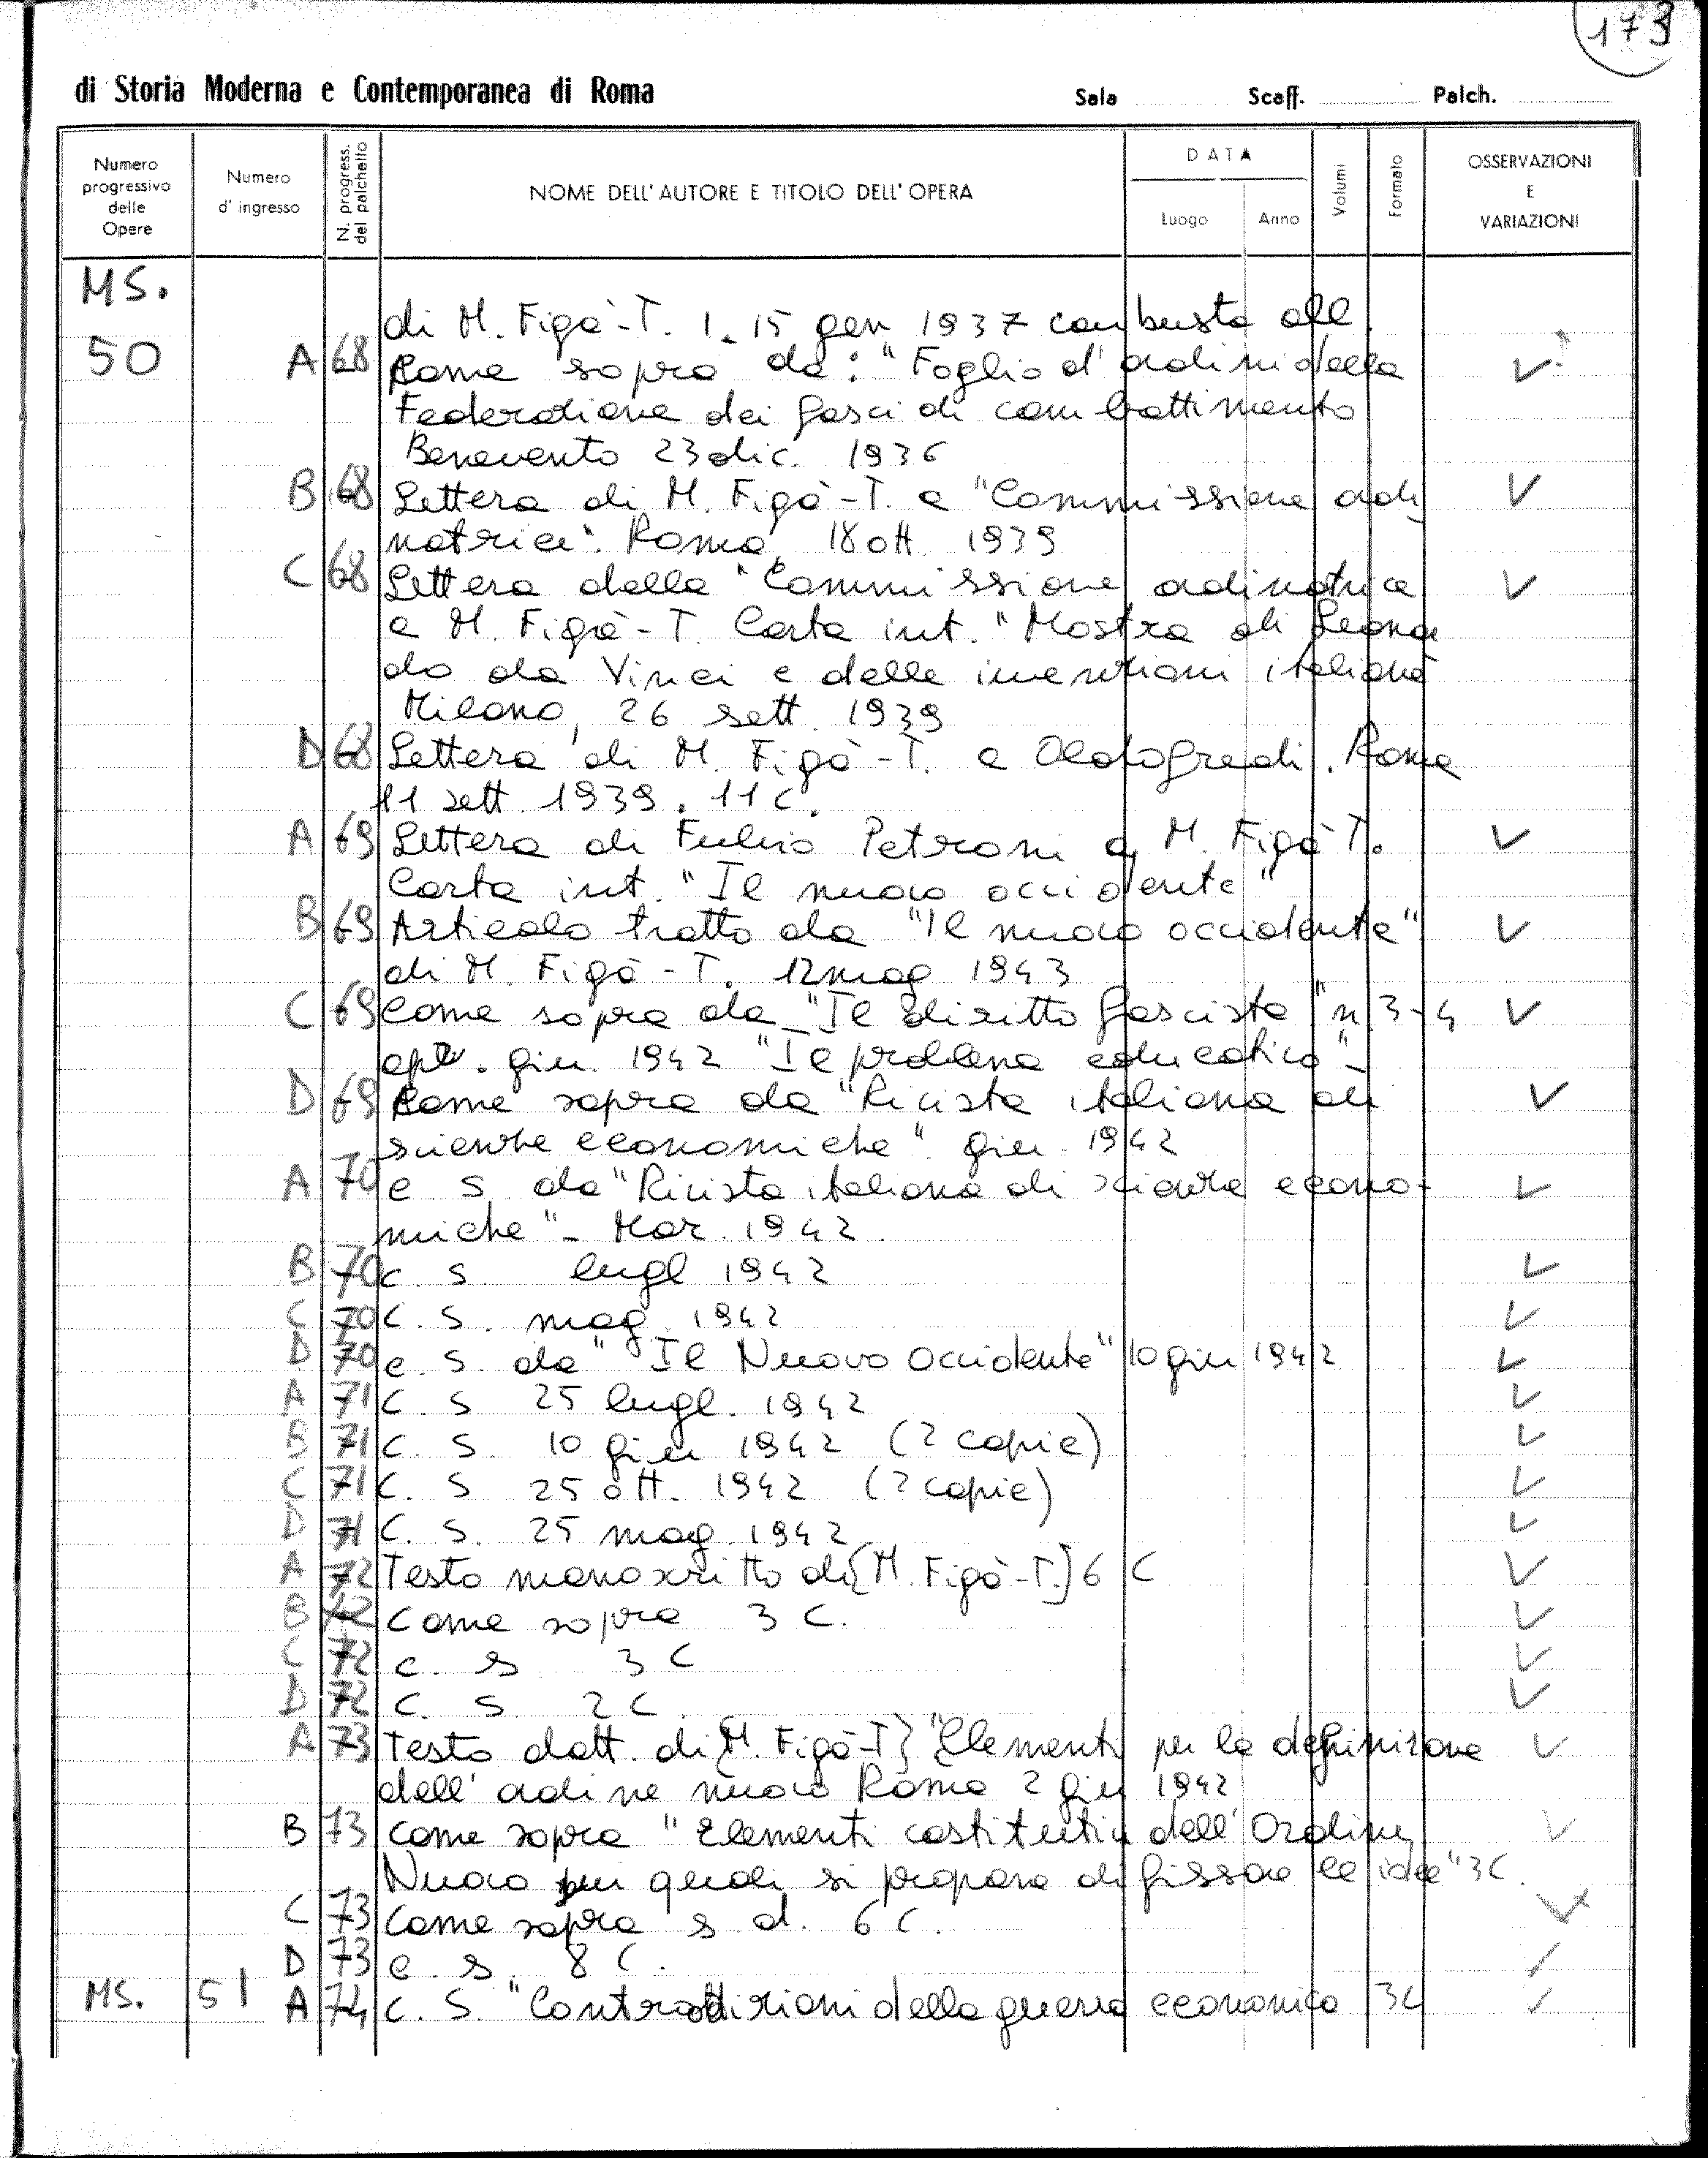 173
di Storia Moderna e Contemporanea di Roma Sala Scaff. Palch.
Numero progressivo delle Opere
Numero d' ingresso
N. progress. del palchetto
NOME DELL' AUTORE E TITOLO DELL' OPERA
DATA
Luogo Anno
Volumi
Formato
OSSERVAZIONI E VARIAZIONI
MS.
di M. Figà-T. 1. 15 gen 1937 con busta all
50 A 68 Come sopra da: "Foglio d'ordini della
Federazione dei fasci di combattimento
Benevento 23 dic. 1936
B 68 Lettera di M. Figà-T. a "Commissione ordi
natrice". Roma, 18 ott. 1939
C 68 Lettera della "Commissione ordinatrice
a M. Figà-T. Carta int. "Mostra di Leonar
do da Vinci e delle invenzioni italiane
Milano, 26 sett. 1939
D 68 Lettera di M. Figà-T. a Oldofredi. Roma
11 sett 1939. 11 c.
A 69 Lettera di Fulvio Petroni a M. Figà T.
Carta int. "Il nuovo occidente"
B 69 Articolo tratto da "Il nuovo occidente"
di M. Figà-T. 12 mag 1943
C 69 Come sopra da "Il diritto fascista" n 3-4
apr. giu. 1942 "Il problema educativo"-
D 69 Come sopra da "Rivista italiana di
scienze economiche". giu. 1942
A 70 c s da "Rivista italiana di scienze econo-
miche" - Mar. 1942.
B 70 c. s lugl 1942
C 70 C. S. mag. 1942
D 70 c s. da "Il Nuovo Occidente" 10 giu 1942
A 71 C. S 25 lugl. 1942
B 71 C. S. 10 giu 1942 (2 copie)
C 71 C. S 25 ott. 1942 (2 copie)
D 71 C. S. 25 mag. 1942
A 72 Testo manoscritto di [M. Figà-T.] 6 C
B 72 Come sopra 3 C.
C 72 c. s 3 C
D 72 C. S 2 C.
A 73 Testo datt. di [M. Figà-T] "Elementi per la definizione
dell' ordine nuovo Roma 2 giu 1942
B 73 Come sopra "Elementi costitutivi dell' Ordine
Nuovo sui quali si propone di fissare le idee" 3 C.
C 73 Come sopra s d. 6 C.
D 73 c. s. 8 C.
MS. 51 A 74 C. S. "Contraddizioni della guerra economica 3 C